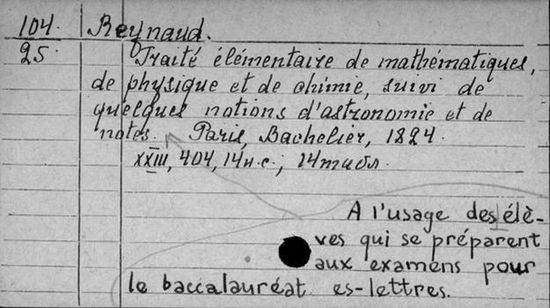 104 Reynaud.
25 Traité élémentaire de mathématiques,
de physique et de chimie, suivi de
quelques notions d'astronomie et de
notes. Paris, Bachelier, 1824.
XXIII, 404, 14 n.c.;
A l'usage des élè-
ves qui se préparent
aux examens pour
le baccalauréat es-lettres.